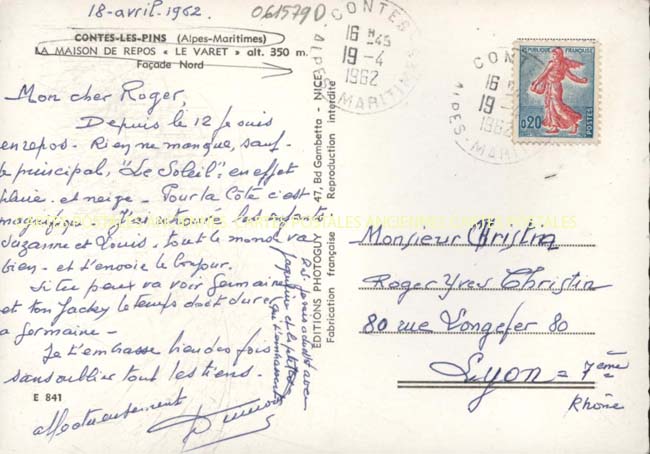 18-avril-1962.
061579D
CONTES-LES-PINS (Alpes-Maritimes)
LA MAISON DE REPOS « LE VARET » alt. 350 m.
Façade Nord
Mon cher Roger,
Depuis le 12 je suis
en repos - Rien ne manque, sauf
le principal, "Le Soleil", en effet
pluie et neige - Pour la Côte c'est
les enfants
Suzanne et Louis, tout le monde va
bien - et t'envoie le bonjour.
Si tu peux va voir Germaine
et ton Jacky le temps doit durer
a Germaine -
Je t'embrasse bien des fois
sans oublier tout les tiens.
affectueusement
qui t'embrassent
E 841
EDITIONS PHOTOGUY - 47, Bd Gambetta - NICE
Fabrication française Reproduction interdite
CONTES
16 H 45
19-4
1962
ALPES-MARITIMES
CONTES
16
19
1962
ALPES-MARITIMES
REPUBLIQUE FRANÇAISE
0,20
POSTES
CARTES POSTALES ANCIENNES
Monsieur Christin
Roger Yves Christin
80 rue Longefer 80
Lyon = 7ème
Rhône